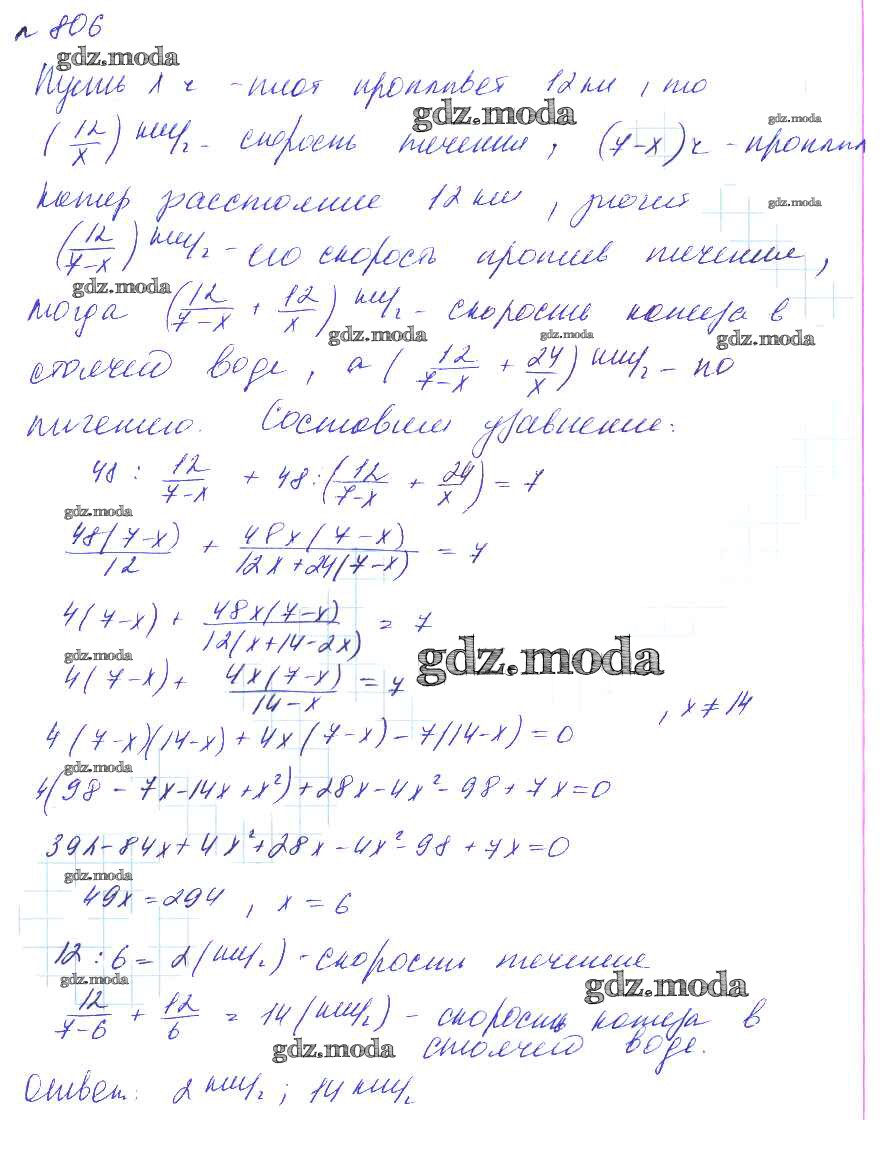 № 806
gdz.moda
Пусть x ч - плот проплывёт 12 км, то
gdz.moda
gdz.moda
(12/x) км/ч - скорость течения, (7-x) ч - проплыл
катер расстояние 12 км, значит
gdz.moda
(12/(7-x)) км/ч - его скорость против течения,
gdz.moda
тогда (12/(7-x) + 12/x) км/ч - скорость катера в
gdz.moda gdz.moda gdz.moda
стоячей воде, а (12/(7-x) + 24/x) км/ч - по
течению. Составим уравнение:
48 : 12/(7-x) + 48 : (12/(7-x) + 24/x) = 7
gdz.moda
48(7-x)/12 + 48x(7-x)/(12x+24(7-x)) = 7
4(7-x) + 48x(7-x)/(12(x+14-2x)) = 7
gdz.moda gdz.moda
4(7-x) + 4x(7-x)/(14-x) = 7
4(7-x)(14-x) + 4x(7-x) - 7(14-x) = 0 , x ≠ 14
gdz.moda
4(98 - 7x - 14x + x²) + 28x - 4x² - 98 + 7x = 0
392 - 84x + 4x² + 28x - 4x² - 98 + 7x = 0
gdz.moda
49x = 294 , x = 6
12 : 6 = 2 (км/ч) - скорость течения
gdz.moda gdz.moda
12/(7-6) + 12/6 = 14 (км/ч) - скорость катера в
gdz.moda
стоячей воде.
Ответ: 2 км/ч ; 14 км/ч